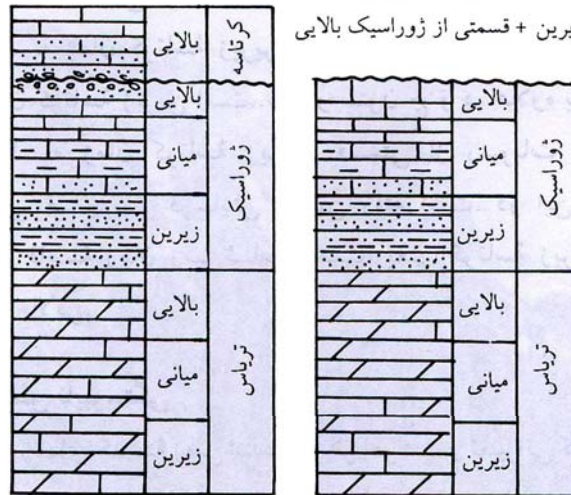 یرین + قسمتی از ژوراسیک بالایی
بالایی
کرتاسه
بالایی
میانی
زیرین
ژوراسیک
بالایی
میانی
زیرین
تریاس
بالایی
میانی
زیرین
ژوراسیک
بالایی
میانی
زیرین
تریاس